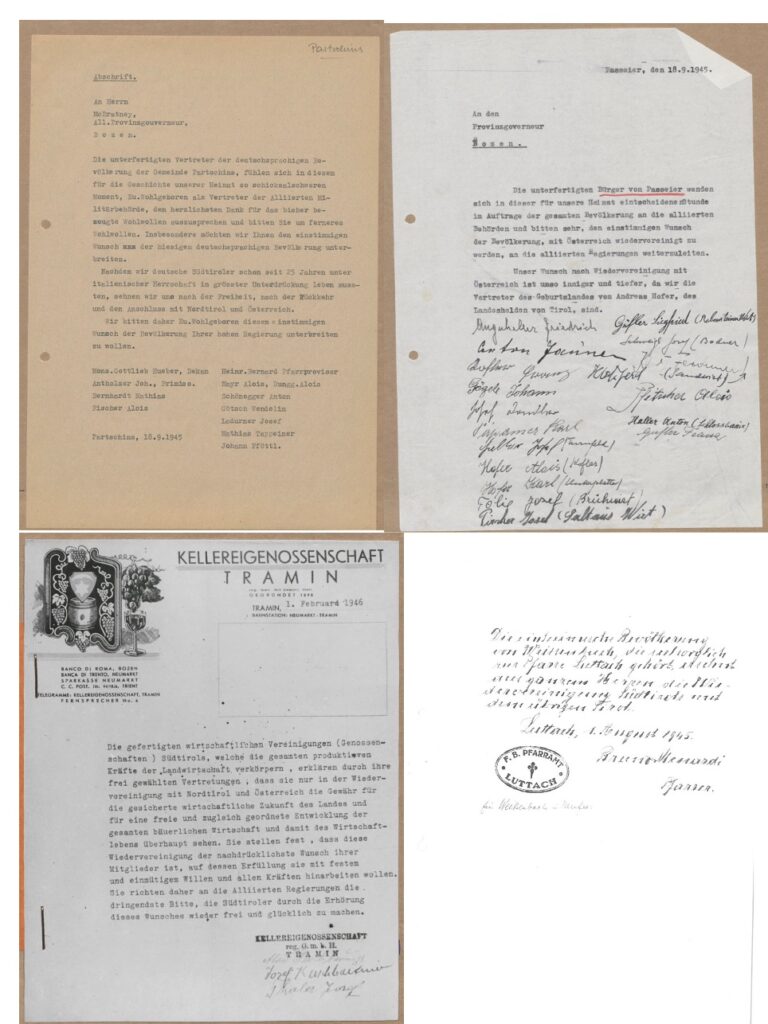 Partschins
Abschrift.
An Herrn
McBratney,
All.Provinzgouverneur,
B o z e n.
Die unterfertigten Vertreter der deutschsprachigen Be-
völkerung der Gemeinde Partschins, fühlen sich in diesen
für die Geschichte unserer Heimat so schicksalschweren
Moment, Eu.Wohlgeboren als Vertreter der Alliierten Mi-
litärbehörde, den herzlichsten Dank für das bisher be-
zeugte Wohlwollen auszusprechen und bitten Sie um ferneres
Wohlwollen. Insbesondere möchten wir Ihnen den einstimmigen
Wunsch der hiesigen deutschsprachigen Bevölkerung unter-
breiten.
Nachdem wir deutsche Südtiroler schon seit 25 Jahren unter
italienischer Herrschaft in grösster Unterdrückung leben muss-
ten, sehnen wir uns nach der Freiheit, nach der Rückkehr
und den Anschluss mit Nordtirol und Österreich.
Wir bitten daher Eu.Wohlgeboren diesem einstimmigen
Wunsch der Bevölkerung Ihrer hohen Regierung unterbreiten
zu wollen.
Mons.Gottlieb Hueber, Dekan
Anthölzer Joh., Primiss.
Bernhardt Mathias
Fischer Alois
Heinr.Bernard Pfarrproviser
Mayr Alois, Dungg.Alois
Schönegger Anton
Götsch Wendelin
Ladurner Josef
Mathias Tappeiner
Johann Pföttl.
Partschins, 18.9.1945
Passeier, den 18.9.1945.
An den
Provinzgoverneur
B o z e n .
Die unterfertigten Bürger von Passeier wenden
sich in dieser für unsere Heimat eintscheidenen Stunde
im Auftrage der gesamten Bevölkerung an die alliierten
Behörden und bitten sehr, den einstimmigen Wunsch
der Bevölkerung, mit Österreich wiedervereinigt zu
werden, an die alliierten Regierungen weiterzuleiten.
Unser Wunsch nach Wiedervereinigung mit
Österreich ist umso inniger und tiefer, da wir die
Vertreter des Geburtslandes von Andreas Hofer, des
Landshelden von Tirol, sind.
Friedrich
Gufler Siegfried
Anton
Johann
Alois
Haller Anton
Karl
Hofer Alois (Kofler)
Hofer Karl
Josef
Pircher Josef (Saltaus Wirt)
KELLEREIGENOSSENSCHAFT
TRAMIN
GEGRÜNDET 1898
TRAMIN, 1. Februar 1946
BAHNSTATION: NEUMARKT-TRAMIN
BANCO DI ROMA, BOZEN
BANCA DI TRENTO, NEUMARKT
SPARKASSE NEUMARKT
TELEGRAMME: KELLEREIGENOSSENSCHAFT, TRAMIN
FERNSPRECHER No. 4
Die gefertigten wirtschaftlichen Vereinigungen (Genossen-
schaften ) Südtirols, welche die gesamten produktiven
Kräfte der Landwirtschaft verkörpern , erklären durch ihre
frei gewählten Vertretungen , dass sie nur in der Wieder-
vereinigung mit Nordtirol und Österreich die Gewähr für
die gesicherte wirtschaftliche Zukunft des Landes und
für eine freie und zugleich geordnete Entwicklung der
gesamten bäuerlichen Wirtschaft und damit des Wirtschaft-
lebens überhaupt sehen. Sie stellen fest , dass diese
Wiedervereinigung der nachdrücklichste Wunsch ihrer
Mitglieder ist, auf dessen Erfüllung sie mit festen
und einmütigem Willen und allen Kräften hinarbeiten wollen.
Sie richten daher an die Alliierten Regierungen die
dringendste Bitte, die Südtiroler durch die Erhörung
dieses Wunsches wieder frei und glücklich zu machen.
KELLEREIGENOSSENSCHAFT
reg. G. m. b. H.
TRAMIN
Josef
Thaler Josef
Die einheimische Bevölkerung
von Weissenbach, die seelsorglich
zur Pfarre Luttach gehört, ersehnt
aus ganzem Herzen die Wie-
dervereinigung Südtirols mit
dem übrigen Tirol.
Luttach, 1. August 1945.
Bruno Menardi
Pfarrer.
F. B. PFARRAMT
LUTTACH
für Weissenbach